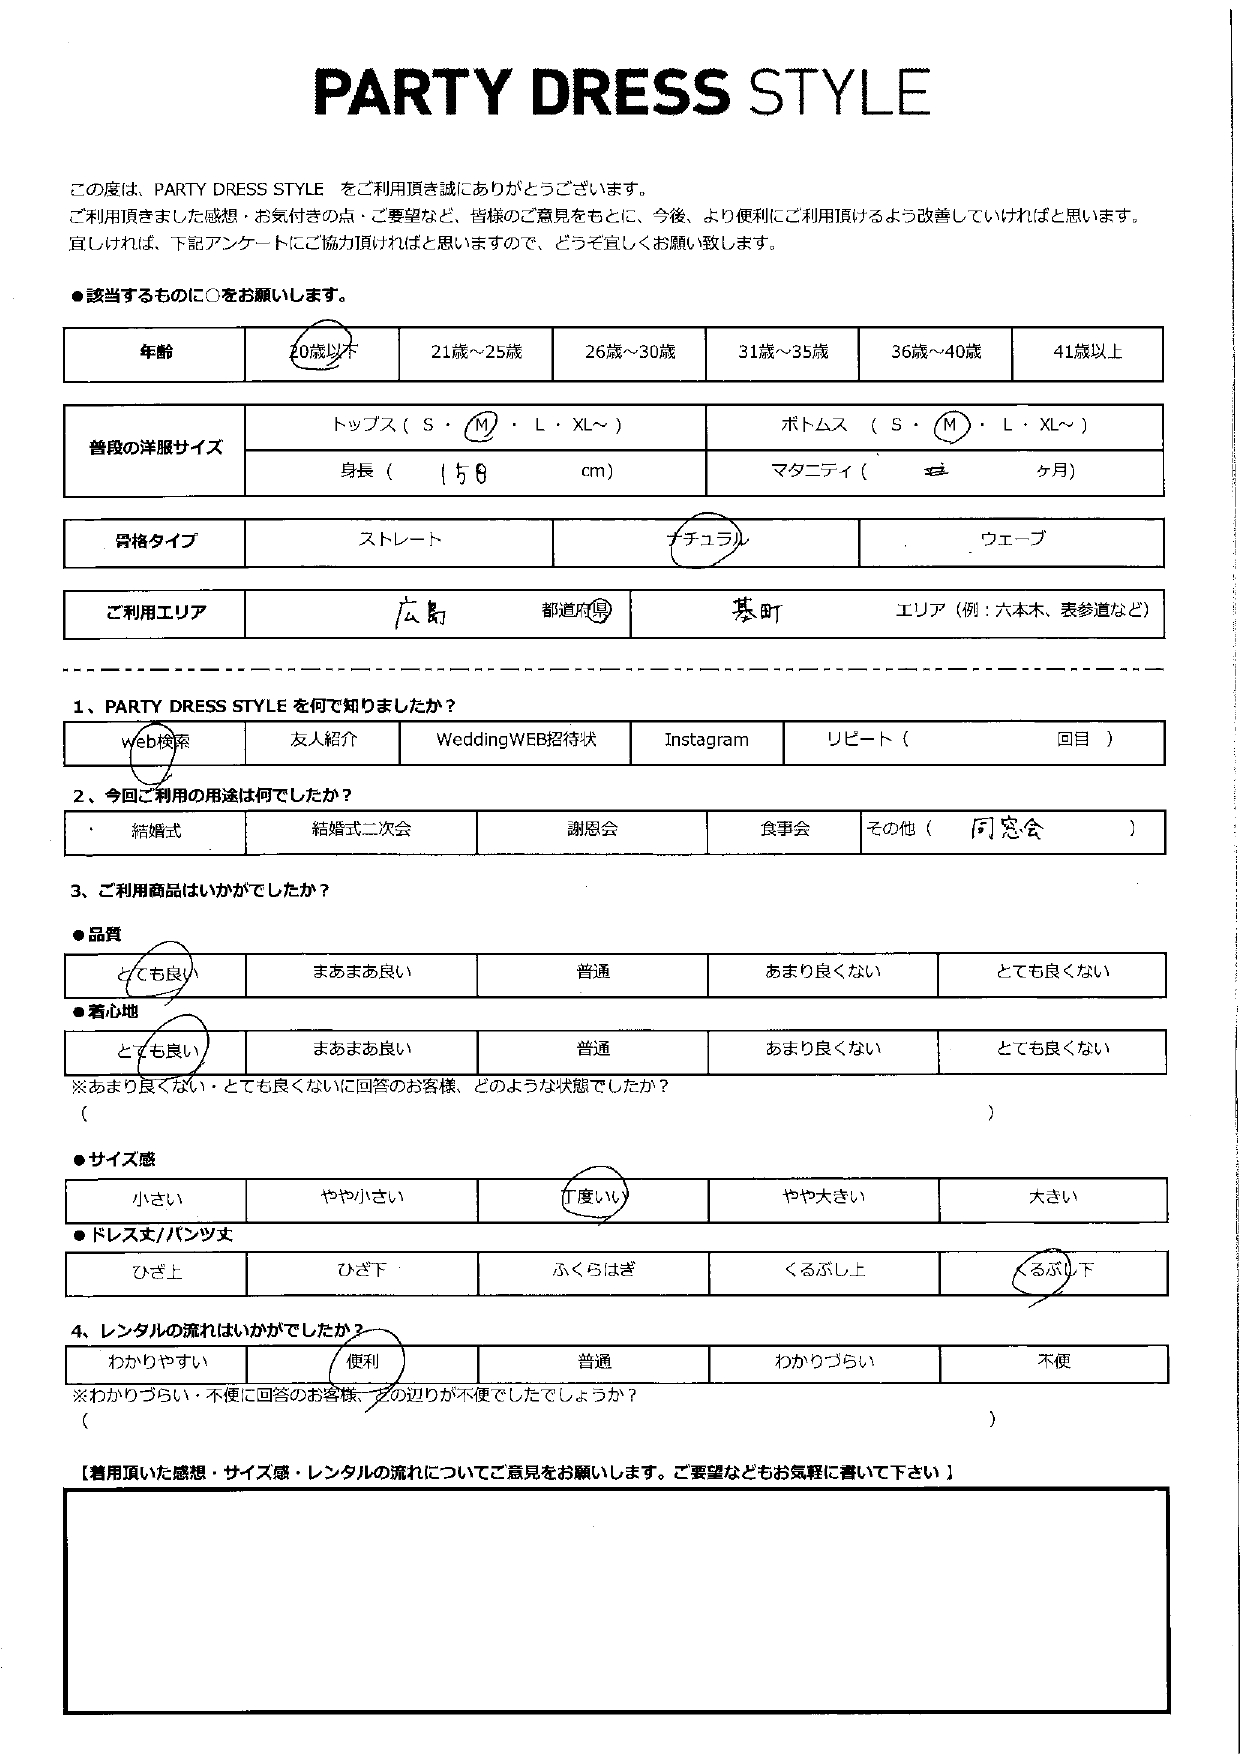 PARTY DRESS STYLE
この度は、PARTY DRESS STYLE　をご利用頂き誠にありがとうございます。
ご利用頂きました感想・お気付きの点・ご要望など、皆様のご意見をもとに、今後、より便利にご利用頂けるよう改善していければと思います。
宜しければ、下記アンケートにご協力頂ければと思いますので、どうぞ宜しくお願い致します。
●該当するものに○をお願いします。
年齢 20歳以下 21歳～25歳 26歳～30歳 31歳～35歳 36歳～40歳 41歳以上
普段の洋服サイズ トップス ( S ・ M ・ L ・ XL～ ) ボトムス ( S ・ M ・ L ・ XL～ )
身長 ( 158 cm) マタニティ ( ヶ月)
骨格タイプ ストレート ナチュラル ウェーブ
ご利用エリア 広島 都道府県 基町 エリア（例：六本木、表参道など）
1、PARTY DRESS STYLE を何で知りましたか？
web検索 友人紹介 WeddingWEB招待状 Instagram リピート（ 回目 ）
2、今回ご利用の用途は何でしたか？
結婚式 結婚式二次会 謝恩会 食事会 その他（ 同窓会 ）
3、ご利用商品はいかがでしたか？
●品質
とても良い まあまあ良い 普通 あまり良くない とても良くない
●着心地
とても良い まあまあ良い 普通 あまり良くない とても良くない
※あまり良くない・とても良くないに回答のお客様、どのような状態でしたか？
（ ）
●サイズ感
小さい やや小さい 丁度いい やや大きい 大きい
●ドレス丈/パンツ丈
ひざ上 ひざ下 ふくらはぎ くるぶし上 くるぶし下
4、レンタルの流れはいかがでしたか？
わかりやすい 便利 普通 わかりづらい 不便
※わかりづらい・不便に回答のお客様、どの辺りが不便でしたでしょうか？
（ ）
【着用頂いた感想・サイズ感・レンタルの流れについてご意見をお願いします。ご要望などもお気軽に書いて下さい】